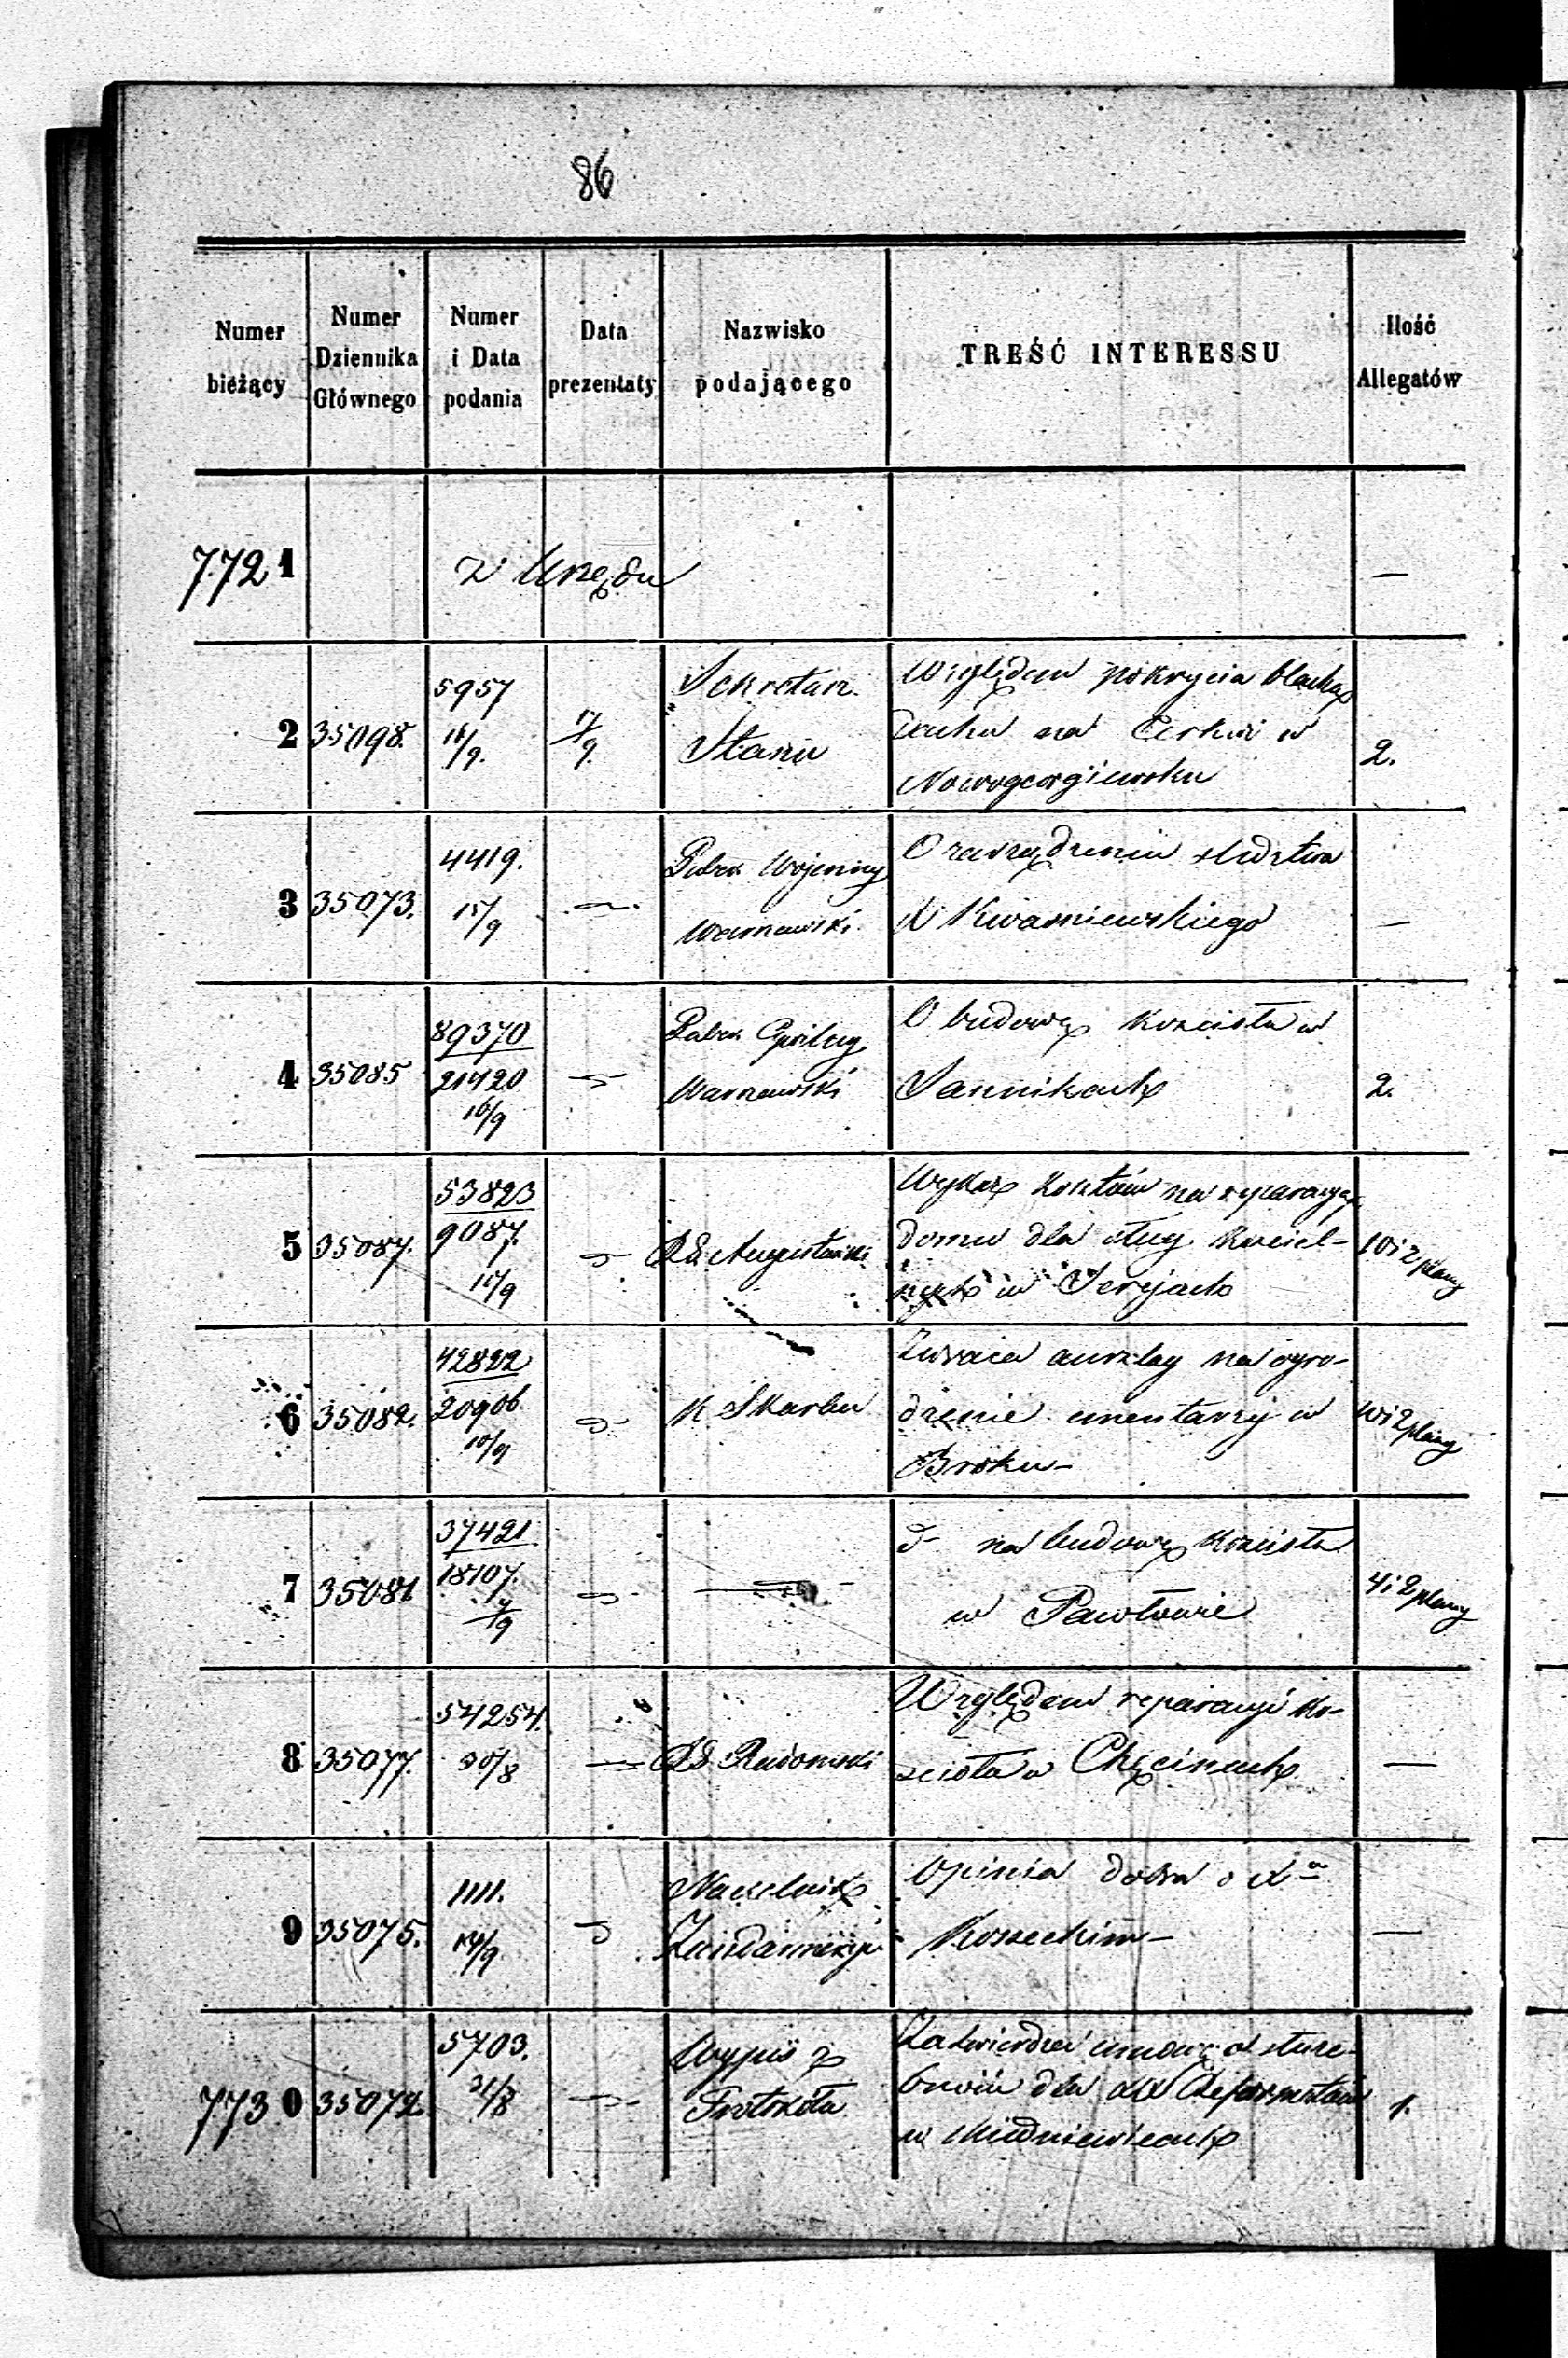 86
Numer bieżący
Numer Dziennika Głównego
Numer i Data podania
Data prezentaty
Nazwisko podającego
TREŚĆ INTERESSU
Ilość Allegatów
7721
z Urzędu
—
2
35098.
5957
16/9.
17/9.
Sekretarz
Stanu
Względem pokrycia blachą
dachu na Cerkwi w
Nowogeorgiewsku
2.
3
35073.
4419.
15/9
Guber Wojenny
Warszawski
O zarządzeniu śledztwa
X Kwaśniewskiego
—
4
35085
89370
21420
16/9
Guber Cywilny
Warszawski
O budowę kościoła w
Sannikach
2.
5
35087.
53823
9087.
15/9
R.G. Augustowski
Wykaz kosztów na reparacyą
domu dla sług kościel-
nych w Serejach
10 i 2 plany
6
35082.
42822
20906
10/9
K Skarbu
Zwraca anszlag na ogro-
dzenie cmentarzy w
Broku-
10 i 2 plany
7
35081
37421
18107.
7/9
d- na budowę kościoła
w Pawłowie
4 i 2 plany
8
35077.
54254.
30/8
RG Radomski
Względem reparacyi ko-
ścioła w Chęcinach
—
9
35075.
1111.
14/9.
Naczelnik
Żandarmeryi
Opinia dobra o X
Koseckim-
—
7730
35072.
5703.
31/8
Wypis z
Protokółu
Zatwierdza umowę o
dla XX Reformatów
w Miedniewicach
1.